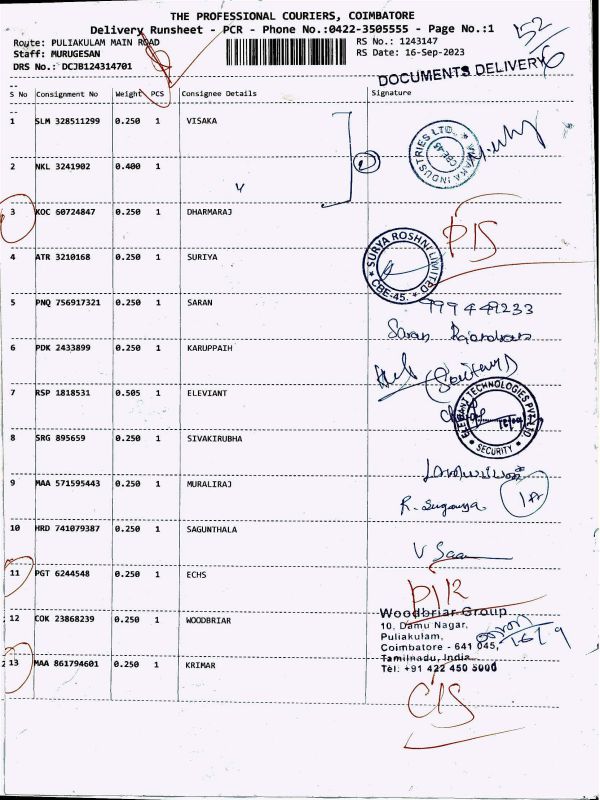 THE PROFESSIONAL COURIERS, COIMBATORE
Delivery Runsheet - PCR - Phone No.:0422-3505555 - Page No.:1
Route: PULIAKULAM MAIN ROAD
Staff: MURUGESAN
DRS No.: DCJB124314701
RS No.: 1243147
RS Date: 16-Sep-2023
52
6
DOCUMENTS DELIVERY
S No Consignment No Weight PCS Consignee Details Signature
1 SLM 328511299 0.250 1 VISAKA
2 NKL 3241902 0.400 1
3 KOC 60724847 0.250 1 DHARMARAJ
4 ATR 3210168 0.250 1 SURIYA
SURYA ROSHNI LIMITED
* CBE-45. *
5 PNQ 756917321 0.250 1 SARAN
Saran
6 PDK 2433899 0.250 1 KARUPPAIH
7 RSP 1818531 0.505 1 ELEVIANT
ELEVIANT TECHNOLOGIES PVT LTD
* SECURITY *
8 SRG 895659 0.250 1 SIVAKIRUBHA
9 MAA 571595443 0.250 1 MURALIRAJ
R. Suganya
10 HRD 741079387 0.250 1 SAGUNTHALA
11 PGT 6244548 0.250 1 ECHS
12 COK 23868239 0.250 1 WOODBRIAR
Woodbriar Group
10, Damu Nagar,
Puliakulam,
Coimbatore - 641 045,
Tamilnadu, India
Tel: +91 422 450 5000
13 MAA 861794601 0.250 1 KRIMAR